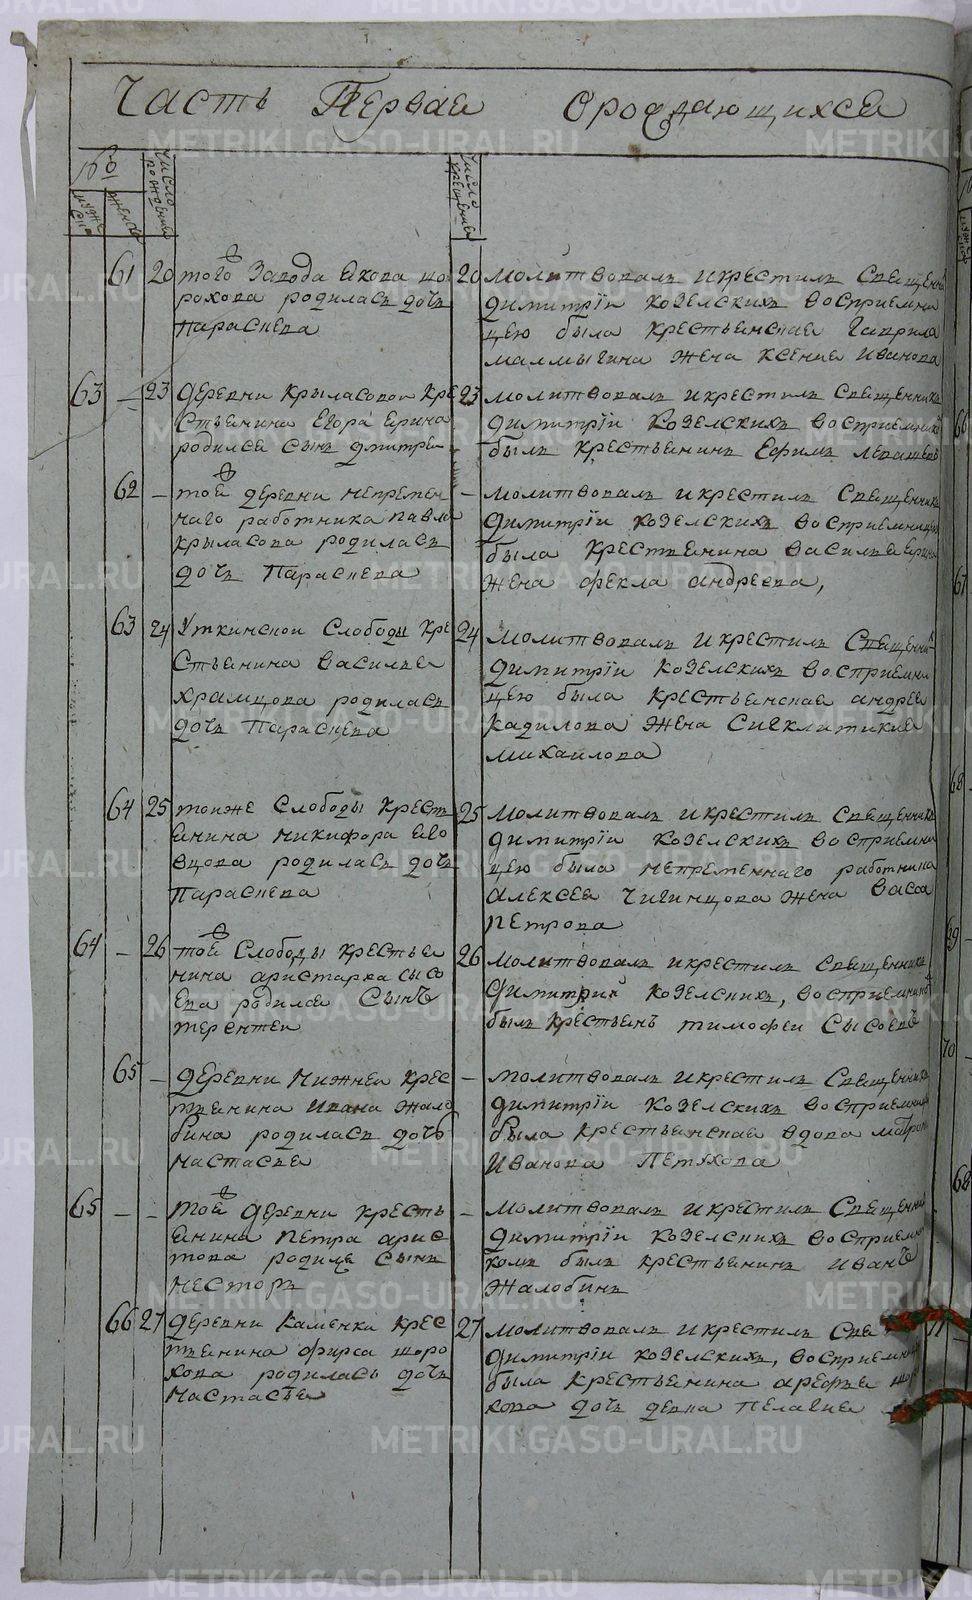 Часть Первая О рождающихся
Число рождения
Число крещения
61 20 того Завода Якова шо
рохова родилась дочь
Параскева
20 молитвовалъ и крестилъ Священн
Димитрїи Козелскихъ восприемни
цею была крестьянская Гаврила
малмыгина жена Ксения Иванова
63 — 23 деревни Крыласовои Кре
стьянина Егора
родился сынъ Дмитре
23 молитвовалъ и крестилъ Священникъ
Димитрїи Козелскихъ восприемникъ
былъ крестьянинъ Ефимъ левашевъ
62 — тоя деревни непремен
наго работника павла
крыласова родилась
дочь Параскева
— молитвовалъ и крестилъ Священникъ
Димитрїи козелскихъ восприемницею
была крестьянина василья
жена фекла андреева,
63 24 Уткинскои Слободы кре
стьянина василья
храмцова родилась
дочь Параскева
24 молитвовалъ и крестилъ Священни
Димитрїи Козелскихъ восприемни
цею была крестьянская андрея
кадилова жена Сигклитикия
михаилова
64 25 тоиже Слободы крестъ
янина никифора яго
вцова родилась дочь
Параскева
25 молитвовалъ и крестилъ Священникъ
Димитрїи Козелскихъ восприемни
цею была непременнаго работника
Алексея Чигинцова жена васса
петрова
64 — 26 тоя Слободы крестья
нина аристарха сысо
ева родился Сынъ
терентеи
26 молитвовалъ и крестилъ Священникъ
Димитрий козелскихъ, восприемникомъ
былъ крестьянъ тимофеи Сысоевъ
65 — деревни Нижнеи крес
тьянина Ивана жало
бина родилась дочь
настасья
— молитвовалъ и крестилъ Священникъ
Димитрїи Козелскихъ восприемни
была крестьянская вдова матрон
Иванова Петухова
65 — — тоя деревни кресть
янина петра арис
това родилъся сынъ
несторъ
— молитвовалъ и крестилъ Священни
Димитрїи козелскихъ восприемни
комъ былъ крестьянинъ иванъ
жалобинъ
66 27 деревни Каменки крес
тьянина фирса шоро
хова родилась дочь
настасья
27 молитвовалъ и крестилъ Свя
Димитрїи козелскихъ, восприемни
была крестьянина арефья шор
хова дочь девка пелагия